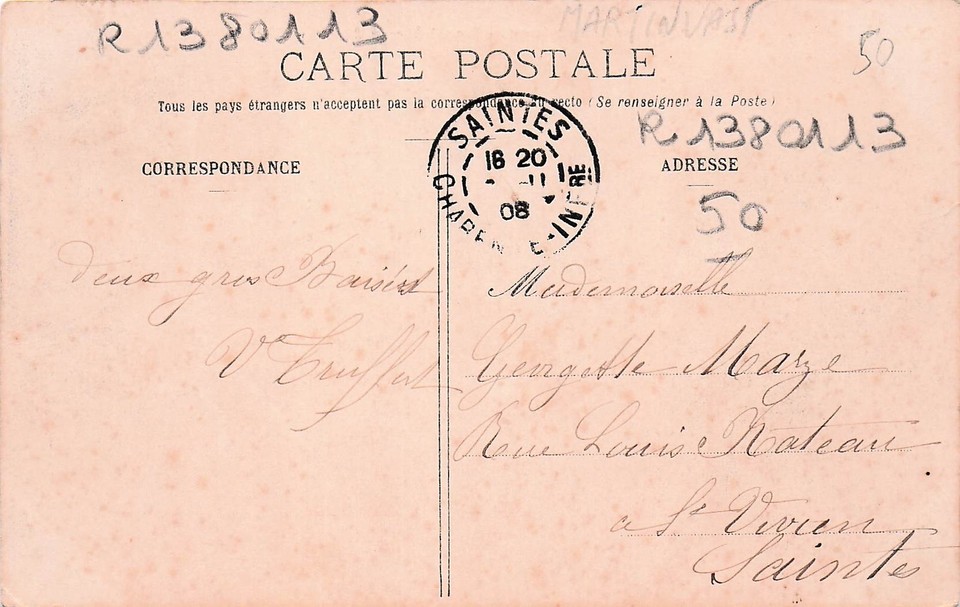 R1380113
MARTINVAST
50
CARTE POSTALE
Tous les pays étrangers n'acceptent pas la correspondance au recto (Se renseigner à la Poste)
R1380113
CORRESPONDANCE
ADRESSE
SAINTES
16 20
11
08
CHAREN E-INFRE
50
deux gros Baisers
V Truffert
Mademoiselle
Georgette Marze
Rue Louis Rateau
a St Vivien
Saintes